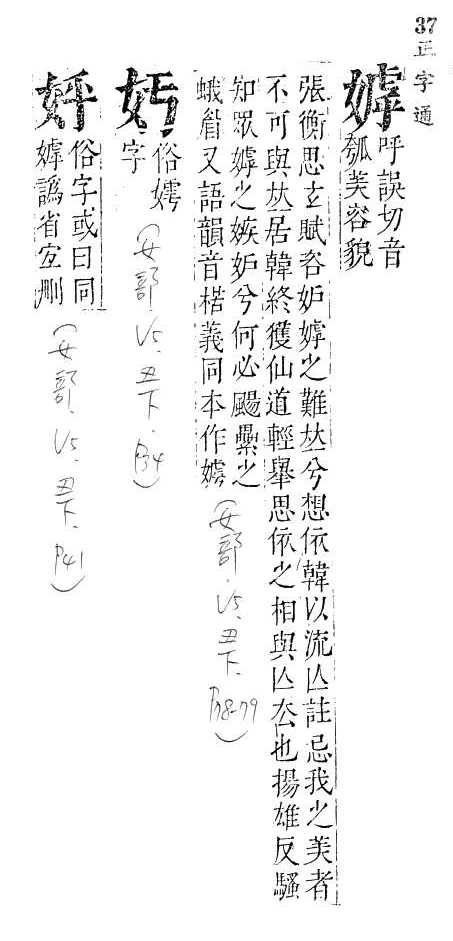 37正字通
嫭
呼誤切音
瓠美容貌
張衡思玄賦咨妒嫭之難𠀤兮想依韓以流亾註忌我之美者
不可與𠀤居韓終獲仙道輕舉思依之相與亾去也揚雄反騷
知眾嫭之嫉妒兮何必颺纍之
蛾眉又語韻音楛義同本作嫮
(女部.V5.丑下.P78-79)
㚢
俗嫮
字
(女部.V5.丑下.P34)
㛁
俗字或曰同
嫭譌省宜刪
(女部.V5.丑下.P41)